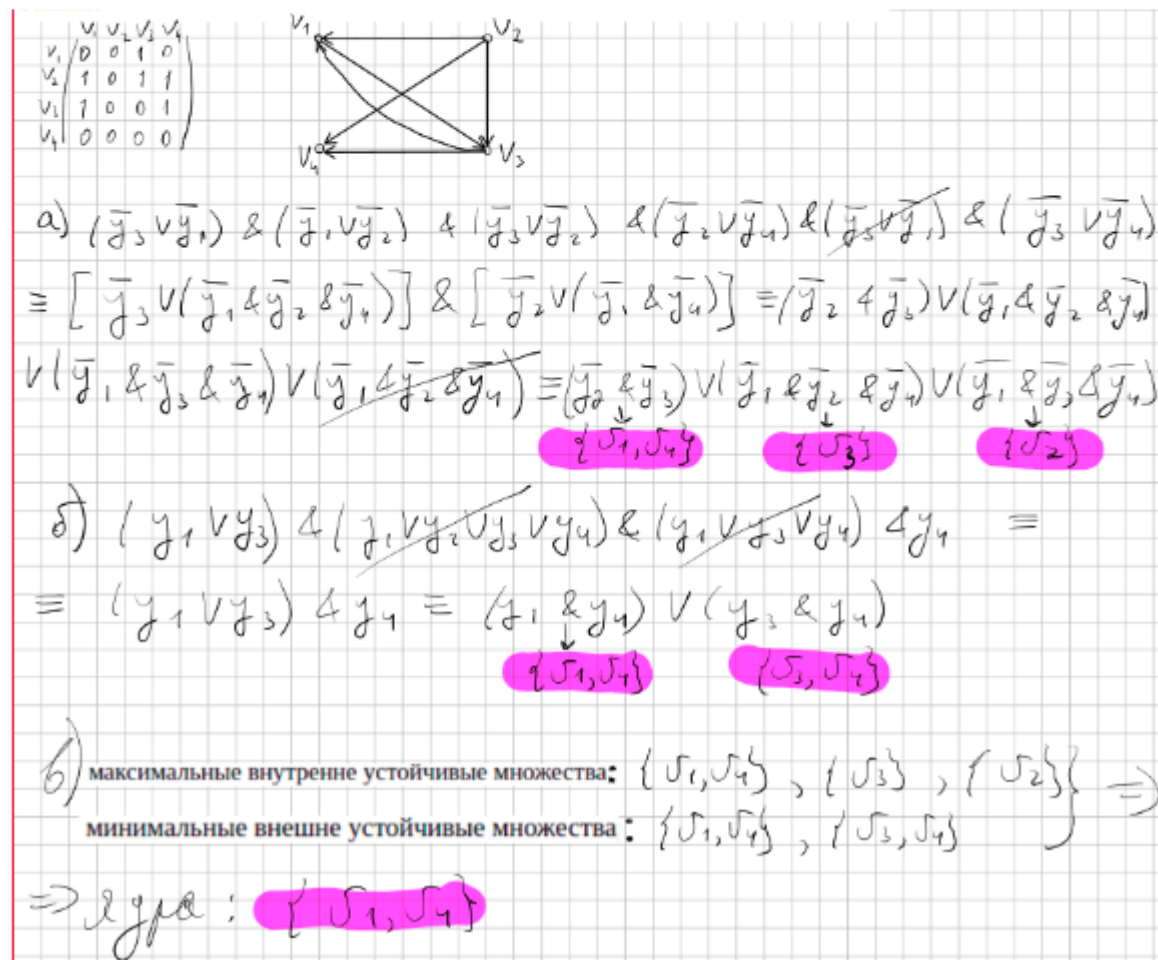 V₁ V₂ V₃ V₄
V₁ 0 0 1 0
V₂ 1 0 1 1
V₃ 1 0 0 1
V₄ 0 0 0 0
V₁ V₂
V₄ V₃
а) (ȳ₃ ∨ ȳ₁) & (ȳ₁ ∨ ȳ₂) & (ȳ₃ ∨ ȳ₂) & (ȳ₂ ∨ ȳ₄) & (ȳ₃ ∨ ȳ₁) & (ȳ₃ ∨ ȳ₄)
≡ [ȳ₃ ∨ (ȳ₁ & ȳ₂ & ȳ₄)] & [ȳ₂ ∨ (ȳ₁ & ȳ₄)] ≡ (ȳ₂ & ȳ₃) ∨ (ȳ₁ & ȳ₂ & ȳ₄)
∨ (ȳ₁ & ȳ₃ & ȳ₄) ∨ (ȳ₁ & ȳ₂ & ȳ₄) ≡ (ȳ₂ & ȳ₃) ∨ (ȳ₁ & ȳ₂ & ȳ₄) ∨ (ȳ₁ & ȳ₃ & ȳ₄)
{V₁, V₄} {V₃} {V₂}
б) (y₁ ∨ y₃) & (y₁ ∨ y₂ ∨ y₃ ∨ y₄) & (y₁ ∨ y₃ ∨ y₄) & y₄ ≡
≡ (y₁ ∨ y₃) & y₄ ≡ (y₁ & y₄) ∨ (y₃ & y₄)
{V₁, V₄} {V₃, V₄}
в) максимальные внутренне устойчивые множества: {V₁, V₄}, {V₃}, {V₂} } ⇒
минимальные внешне устойчивые множества: {V₁, V₄}, {V₃, V₄}
⇒ ядра: {V₁, V₄}